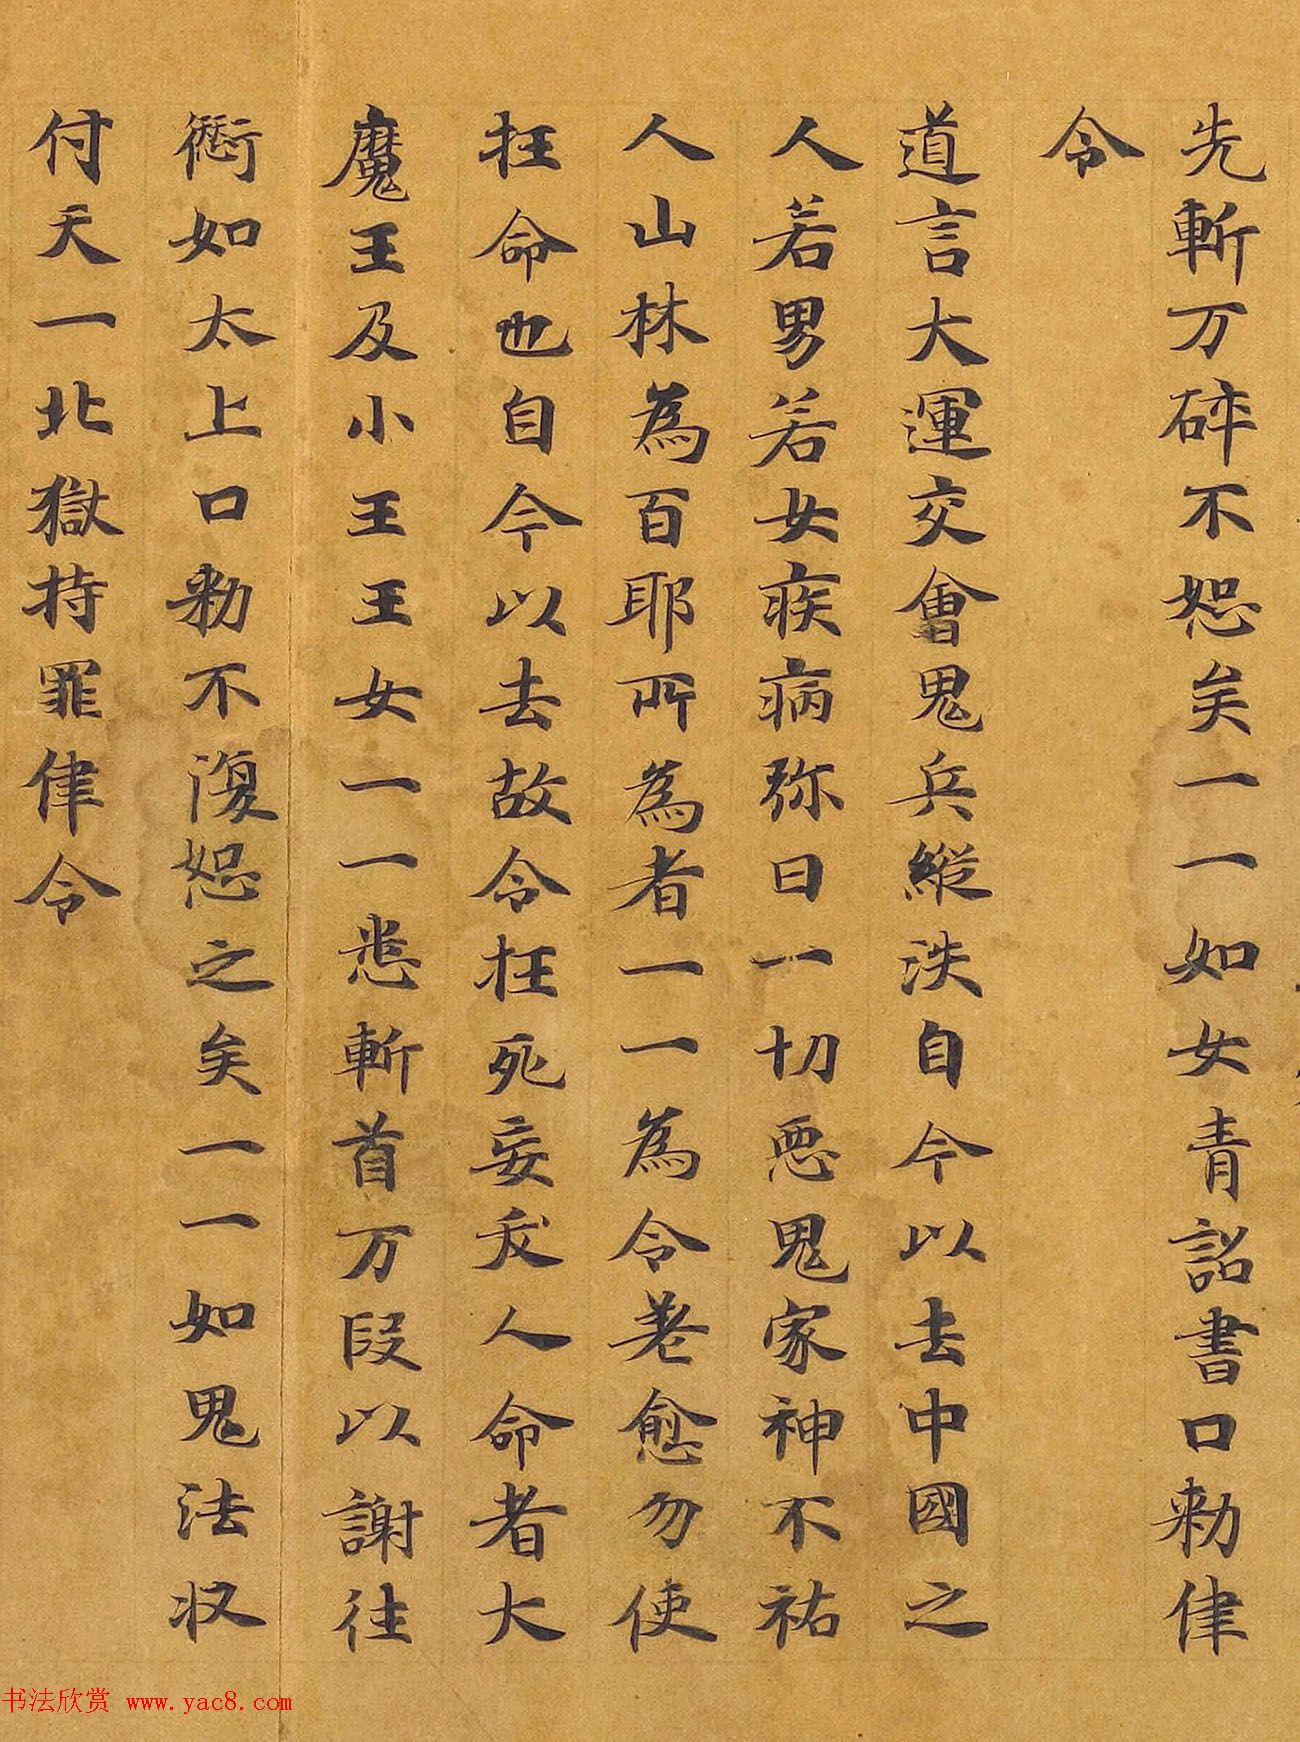 先斬万碎不恕矣一一如女青詔書口勑律
令
道言大運交會鬼兵縱泆自今以去中國之
人若男若女疾病弥日一切惡鬼家神不祐
人山林為百耶所為者一一為令差愈勿使
枉命也自今以去故令枉死妄夭人命者大
魔王及小王王女一一悉斬首万段以謝往
衍如太上口勑不復恕之矣一一如鬼法収
付天一北獄持罪律令
书法欣赏 www.yac8.com